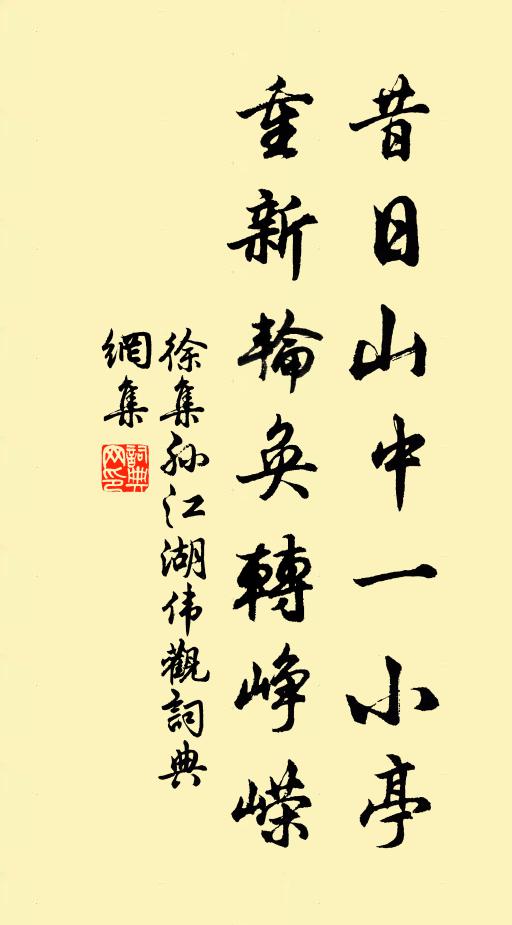 昔日山中一小亭
重新輪奐轉崢嶸
徐集孙江湖伟觀詞典
網集
詞典網印